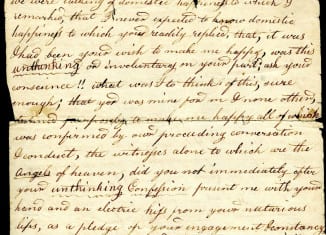 we were talking of domestic happiness to which I
remarked, that I never expected to know domestic
happiness to which you readily replied, that, it was
I had been your wish to make me happy, was this
unthinking or involuntary on your part; ask your
conscience!! what was I to think of this, sure
enough; that you was mine for in I none others
formed purposely to make me happy all of which
was confirmed by our preceeding conversation
I conduct, the witnesses alone to which are the
Angels of heaven, did you not immediately after
your unthinking Confession present me with your
hand and an electric kiss from your
lips, as a pledge of your engagement I constancy